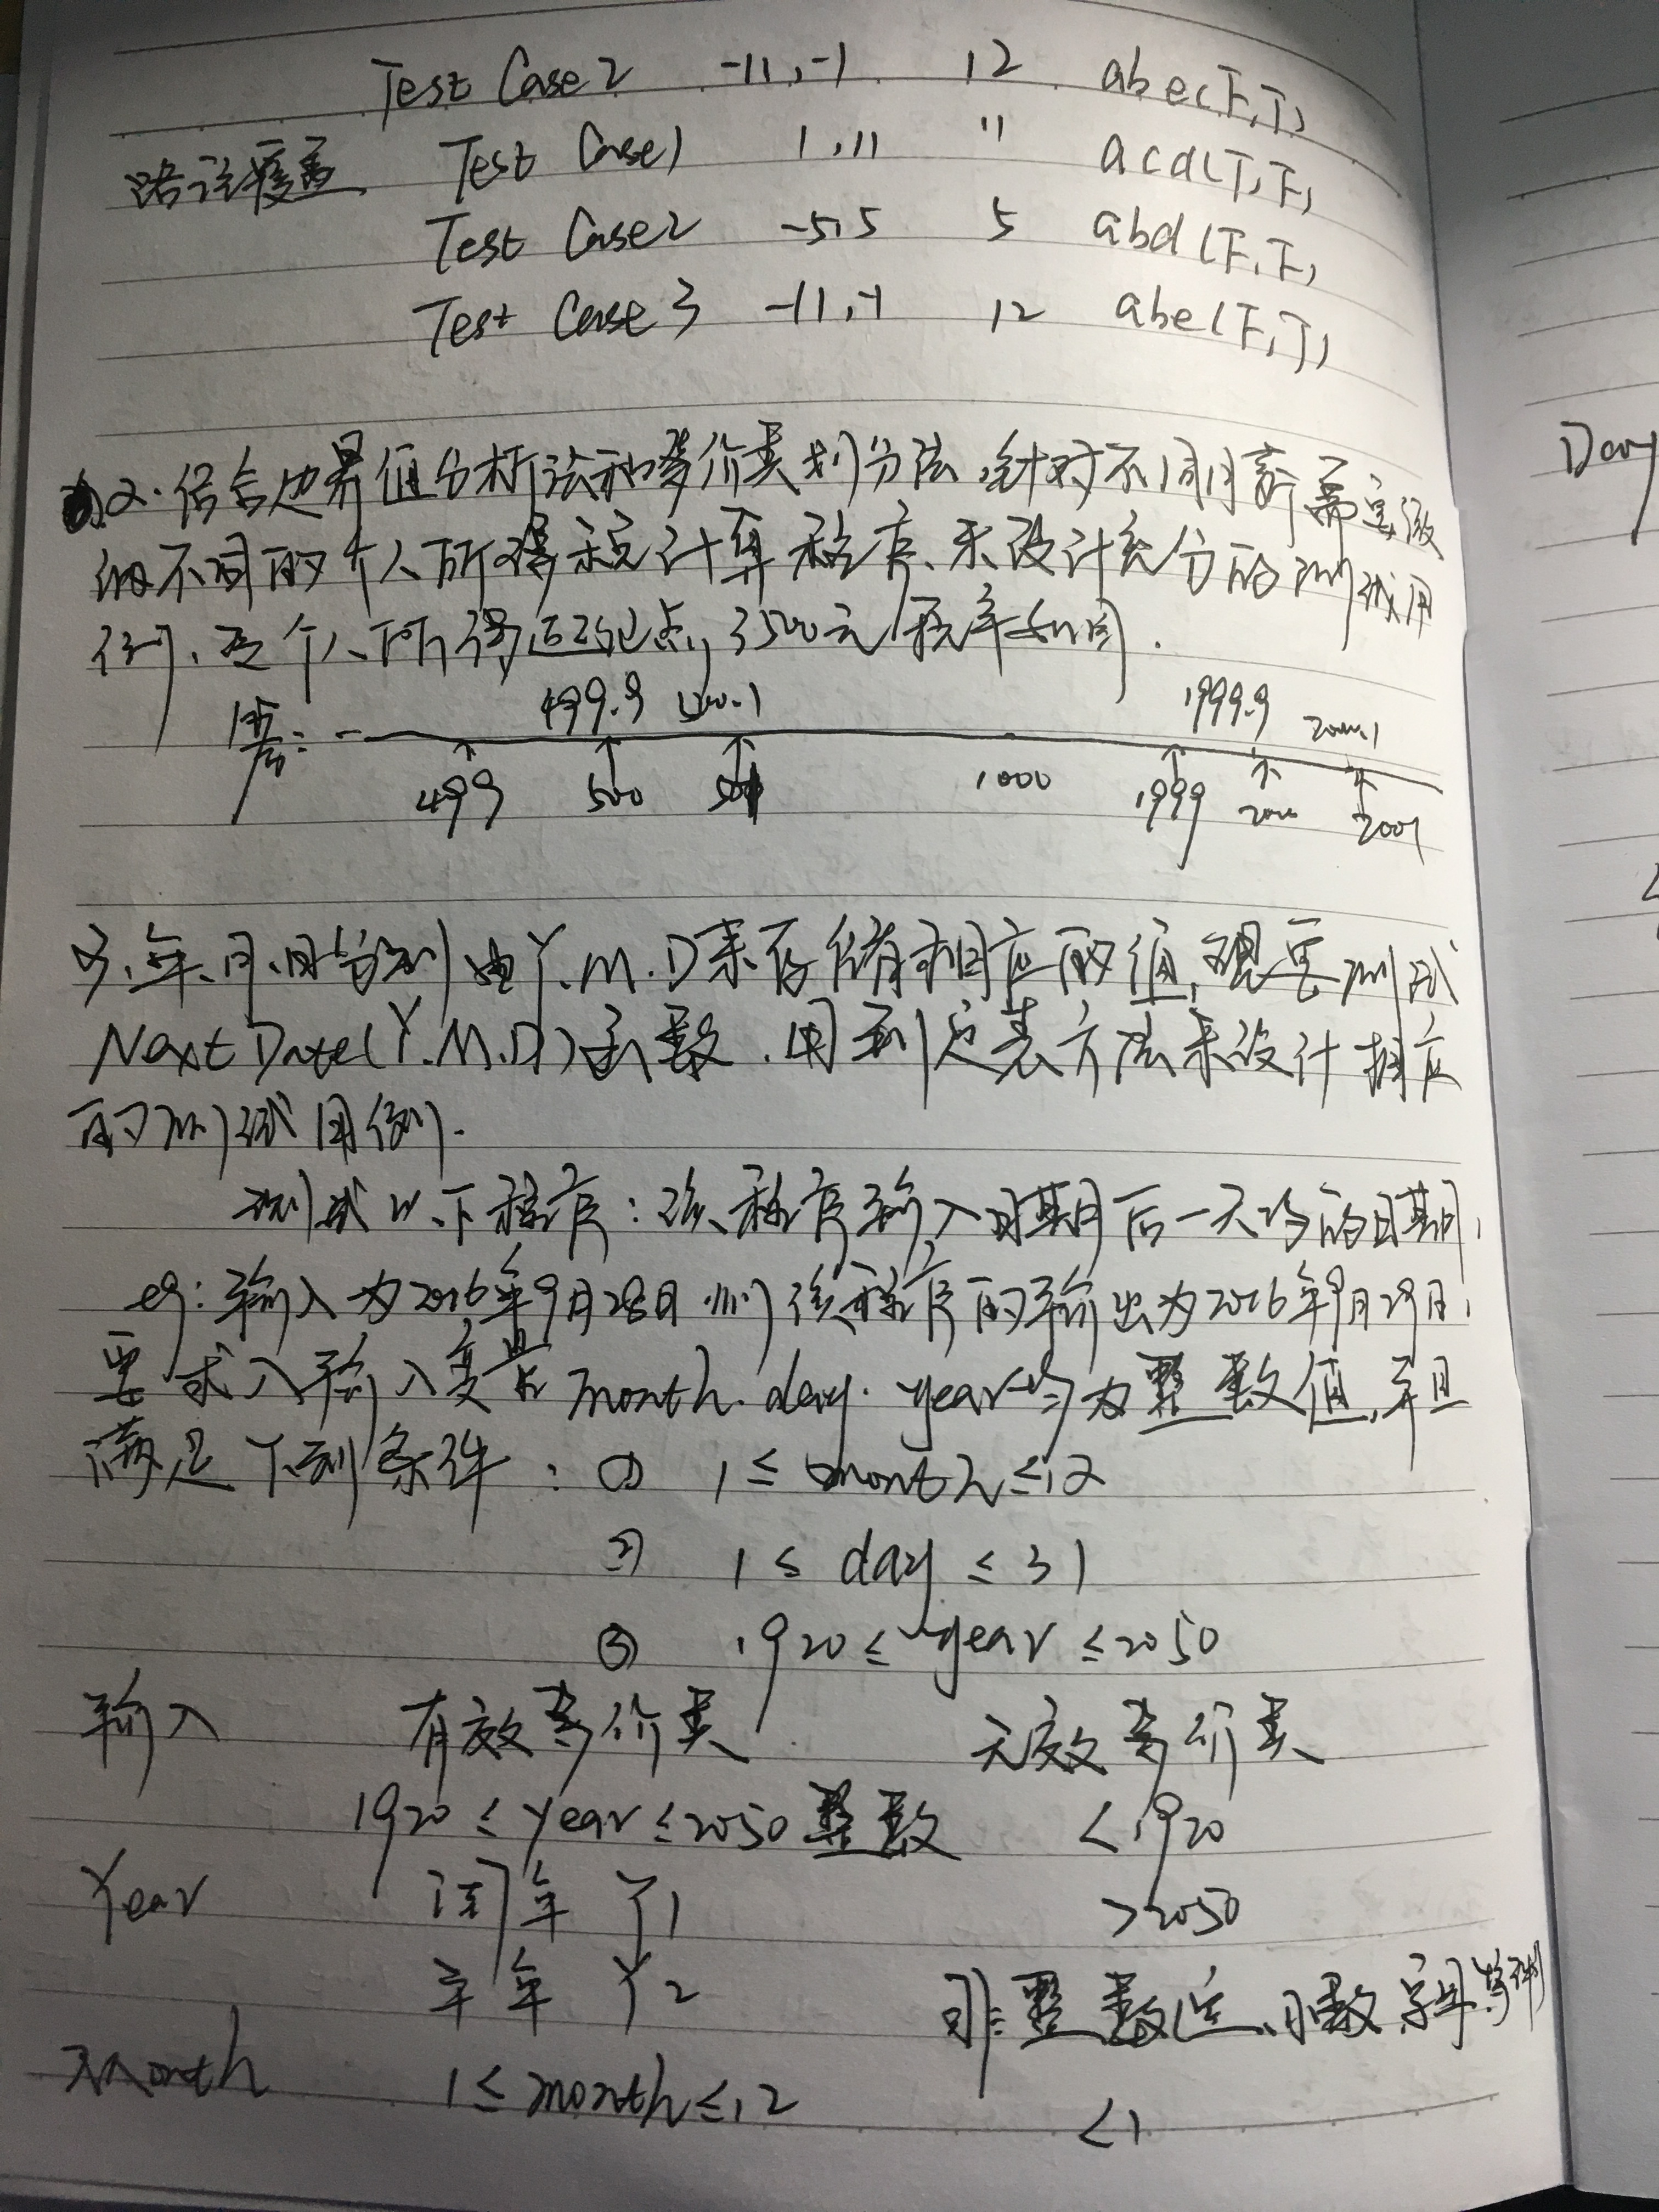 Test Case2 -11,-1 12 abe(F,T)
路径覆盖 Test Case1 1,11 11 acd(T,F)
Test Case2 -5,5 5 abd(F,F)
Test Case3 -11,-1 12 abe(F,T)
2.结合边界值分析法和等价类划分法,针对不同月薪需要缴
纳不同的个人所得税计算程序、来设计充分的测试用
例、个人所得起点,3500元 税率如图.
499.9 500.1 1999.9 2000.1
499 500 501 1000 1999 2000 2001
3、年、月、日分别由Y.M.D来存储相应的值,现要测试
NextDate(Y.M.D)函数.用判定表方法来设计相应
的测试用例.
测试以下程序:该程序输入日期后一天的日期,
eg:输入为2016年9月28日,则该程序的输出为2016年9月29日,
要求输入变量month.day.year均为整数值,并且
满足下列条件:① 1≤month≤12
② 1≤day≤31
③ 1920≤year≤2050
输入 有效等价类 无效等价类
1920≤year≤2050整数 <1920
Year 闰年 Y1 >2050
平年 Y2 非整数、小数、字母
Month 1≤month≤12 <1
Day